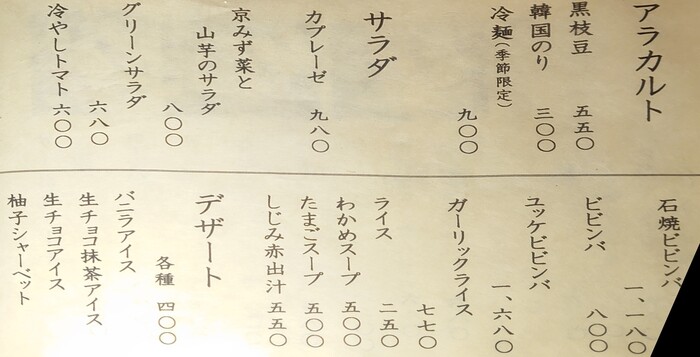 アラカルト
黒枝豆 五五〇
韓国のり 三〇〇
冷麺(季節限定)
九〇〇
サラダ
カプレーゼ 九八〇
京みず菜と
山芋のサラダ
八〇〇
グリーンサラダ
六八〇
冷やしトマト 六〇〇
石焼ビビンバ
一、一八〇
ビビンバ 八〇〇
ユッケビビンバ
一、六八〇
ガーリックライス
七七〇
ライス 二五〇
わかめスープ 五〇〇
たまごスープ 五〇〇
しじみ赤出汁 五五〇
デザート
各種 四〇〇
バニラアイス
生チョコ抹茶アイス
生チョコアイス
柚子シャーベット